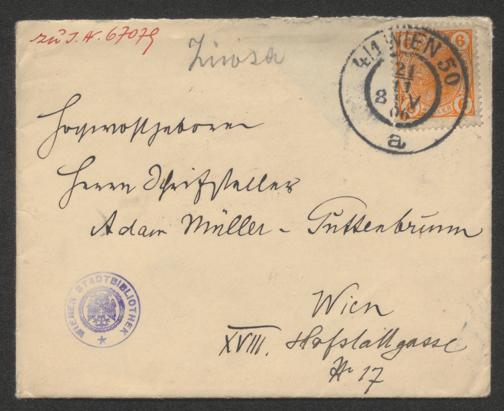 zu I. N. 67079
4/1 WIEN 50
21
11
8 V
06
a
6
6
Hochwohlgeboren
Herrn Schriftsteller
Adam Müller - Guttenbrunn
Wien
XVIII. Hofstattgasse
Nr 17
WIENER STADTBIBLIOTHEK